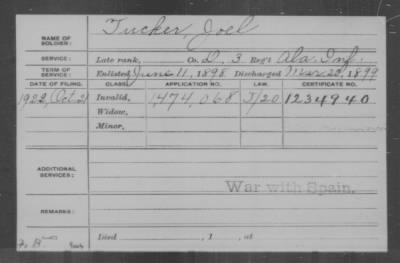 NAME OF SOLDIER: Tucker, Joel
SERVICE: Late rank, Co. D, 3 Reg't Ala. Inf.
TERM OF SERVICE: Enlisted June 11, 1898 Discharged Mar 20, 1899
DATE OF FILING. CLASS. APPLICATION NO. LAW. CERTIFICATE NO.
1922, Oct 2 Invalid, 1,474,068 J/20 1234940.
Widow,
Minor,
ADDITIONAL SERVICES:
War with Spain.
REMARKS:
Died , 1 , at